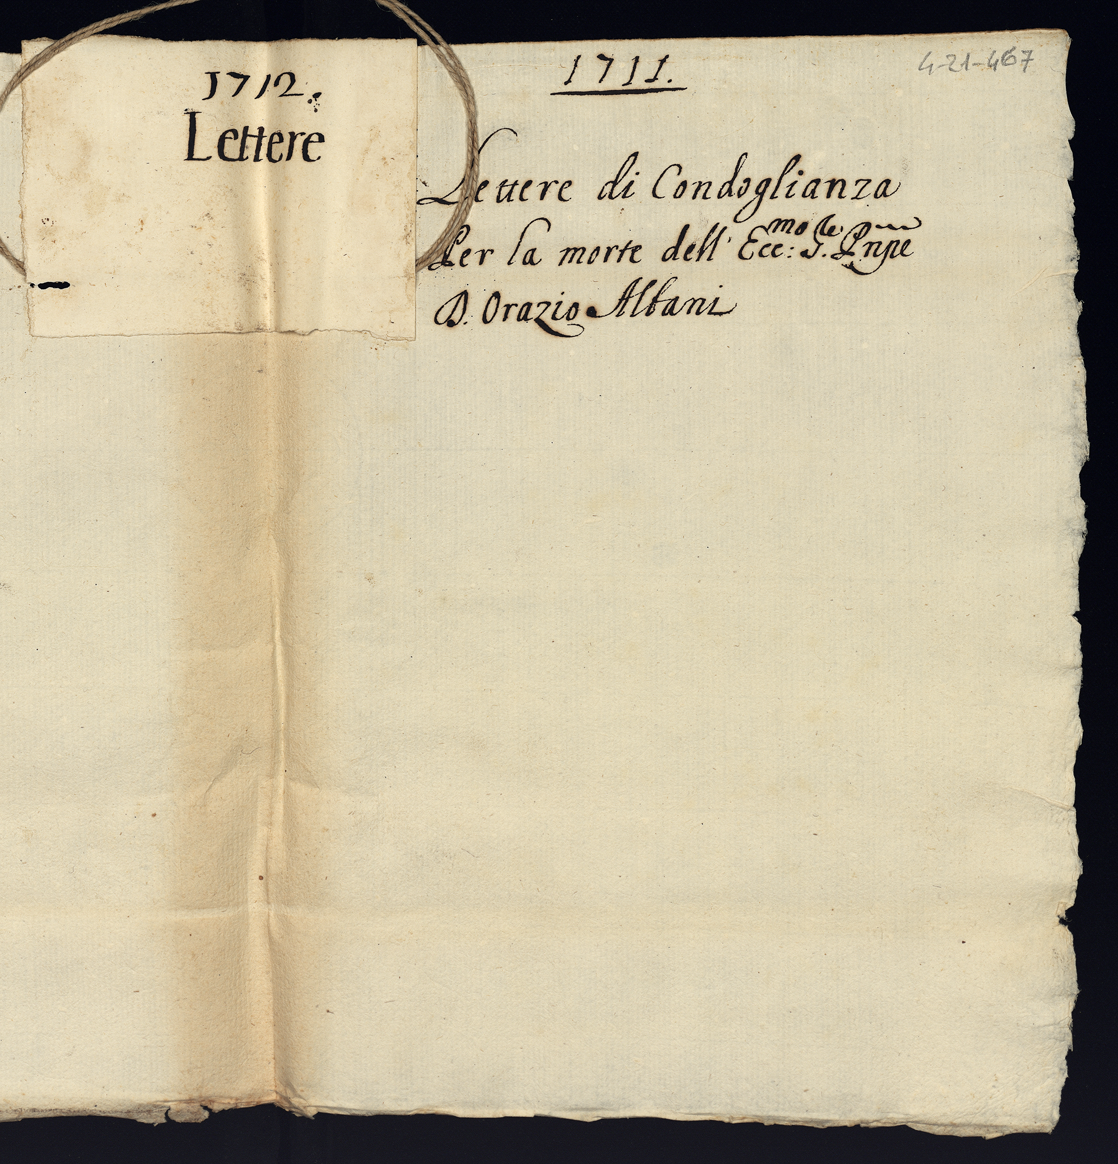 1712.
Lettere
1711.
4-21-467
Lettere di Condoglianza
Per la morte dell' Ecc:mo S.re Pnpe
D. Orazio Albani